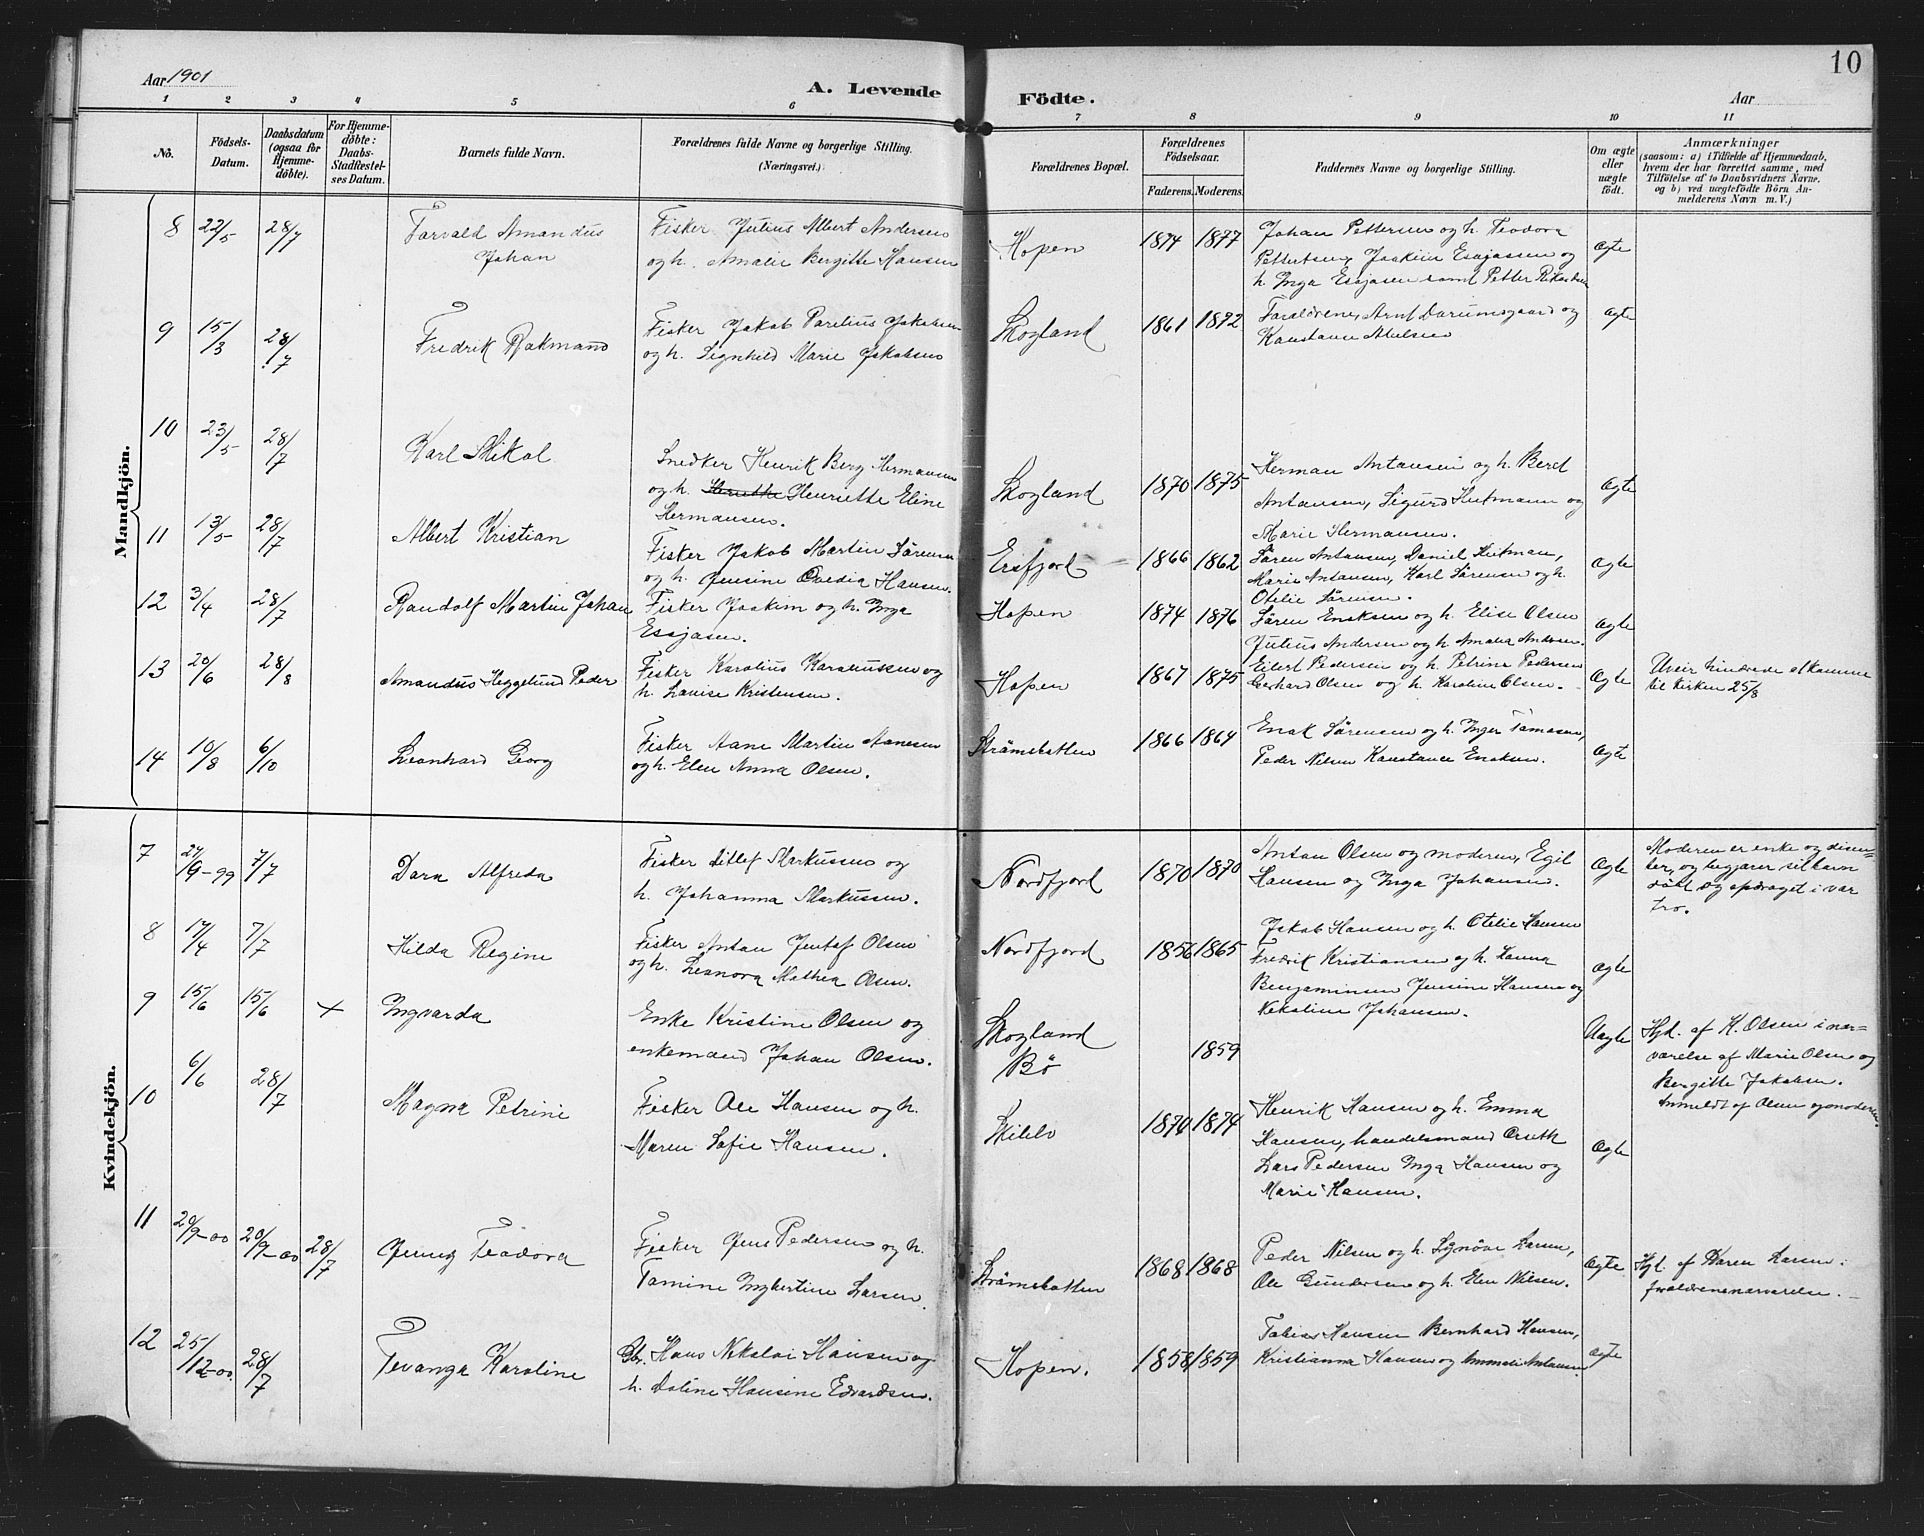 Aar 1901
A. Levende
Födte.
Aar
10
1 2 3 4 5 6 7 8 9 10 11
No.
Födsels-
Datum.
Daabsdatum
(ogsaa for
Hjemme-
döbte).
For Hjemme-
döbte:
Daabs-
Stadfæstel-
ses Datum.
Barnets fulde Navn.
Forældrenes fulde Navne og borgerlige Stilling.
(Næringsvei.)
Forældrenes Bopæl.
Forældrenes
Födselsaar.
Faderens. Moderens.
Faddernes Navne og borgerlige Stilling.
Om ægte
eller
uægte
födt.
Anmærkninger
(saasom: a) i Tilfælde af Hjemmedaab,
hvem der har forrettet samme, med
Tilföielse af to Daabsvidners Navne,
og b) ved uægtefödte Börn An-
melderens Navn m. V.)
Mandkjön.
8 22/5 28/7
Torvald Amandus
Johan
Fisker Julius Albert Andersen
og h. Amalie Bergitte Hansen
Hopen 1874 1877
Johan Pettersen og h. Teodora
Pettersen, Joakim Esajassen og
h. Inga Esajasen samt Petter
ægte
9 15/3 28/7
Fredrik Rakmand
Fisker Jakob Parelius Jakobsen
og h. Signhild Marie Jakobsen
Skogland 1861 1872
Foraldrene, Arnt og
Konstance
ægte
10 23/5 28/7
Karl Mikal
Snedker Henrik Berg Hermansen
og h. Henriette Eline
Hermansen.
Skogland 1870 1875
Herman Antonsen og h. Beret
Antonsen, Sigurd Hutmann og
Marie Hermansen.
ægte
11 13/5 28/7
Albert Kristian
Fisker Jakob Martin Sörensen
og h. Jensine Ovedia Hansen.
Ersfjord 1866 1862
Sören Antonsen, Daniel Hutman,
Marie Antonsen, Karl Sörensen og h.
Otelie Sörensen.
ægte
12 3/4 28/7
Randolf Martin Johan
Fisker Joakim og h. Inga
Esajasen.
Hopen 1874 1876
Sören Enoksen og h. Elise Olsen
Julius Andersen og h. Amalia Andersen.
ægte
13 20/6 28/8
Amandus Heggelund Peder
Fisker Karolius Karoliussen og
h. Lovise Kristensen.
Hopen 1867 1875
Eilert Pedersen og h. Petrine Pedersen
Gerhard Olsen og h. Karoline Olsen.
ægte
Uveir hindrede at komme
til kirken 25/8
14 10/8 6/10
Leonhard Georg
Fisker Aane Martin Aanesen
og h. Elen Anna Olsen.
Strömsbotten 1866 1864
Enok Sörensen og h. Inger Tomasen,
Peder Nilsen Konstance Enoksen.
ægte
Kvindekjön.
7 27/9-99 7/7
Dora Alfreda
Fisker Ditlef Markusen og
h. Johanna Markussen.
Nordfjord 1870 1870
Anton Olsen og moderen, Egil
Hansen og Inga Johansen.
ægte
Moderen er enke og dissen-
ter, og begjærer sit barn
döbt og opdraget i vor
tro.
8 17/4 7/7
Hilda Regine
Fisker Anton Olsen
og h. Leonora Mathea Olsen.
Nordfjord 1856 1865
Jakob Hansen og h. Otelie Hansen
Fredrik Kristiansen og h. Hanna
Benjaminsen Jensine Hansen og
Nekoline Johansen.
ægte
9 15/6 15/6 +
Ingvarda
Enke Kristine Olsen og
enkemand Johan Olsen.
Skogland
Bö
1859
Uægte
Hjd. af K. Olsen i nær-
værelse af Marie Olsen og
Bergitte Jakobsen.
Anmeldt af Olsen og moderen.
10 6/6 28/7
Magna Petrine
Fisker Ole Hansen og h.
Maren Sofie Hansen.
1870 1874
Henrik Hansen og h. Emma
Hansen, handelsmand
Lars Pedersen Inga Hansen og
Marie Hansen.
ægte
11 20/9-00 20/9-00 28/7
Jenny Teodora
Fisker Jens Pedersen og h.
Tomine Ingbertine Larsen.
Strömsbotten 1868 1868
Peder Nilsen og h. Signöve Larsen,
Ole Gundersen og h. Elen Nilsen.
ægte
Hjd. af Maren Larsen i
foraldrenes nærværelse.
12 25/12-00 28/7
Tevanga Karoline
Gbr. Hans Nekolai Hansen og
h. Doline Hansine Edvardsen.
Hopen. 1858 1859
Tobias Hansen Bernhard Hansen,
Kristianna Hansen og Antonsen.
ægte